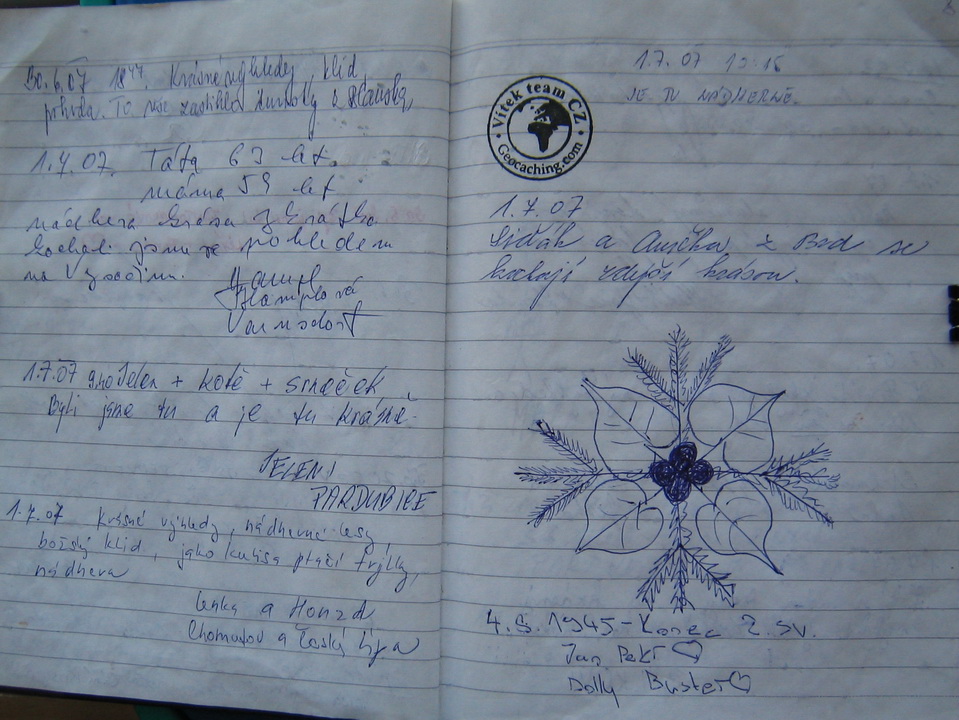 30.6.07 18⁴⁴. Krásné výhledy, klid,
pohoda. To nás zastihlo
1.7.07. Táta 63 let.
máma 59 let
nádhera krása zkrátka
kochali jsme se pohledem
na
Hampl
Hamplová
Varnsdorf
1.7.07 9:40 Jelen + kotě + srneček
Byli jsme tu a je tu krásně.
JELENI
PARDUBICE
1.7.07 Krásné výhledy, nádherné lesy,
božský klid, jako kulisa ptačí trylky,
nádhera
Lenka a Honza
Chomutov a Česká Lípa
1.7.07 13:15
JE TU NÁDHERNĚ.
Vítek team CZ
Geocaching.com
1.7.07
a Anička z Brd se
kochají zdejší krásou.
4.8.1945 - Konec 2. sv.
Jan Petr ♡
Dolly Buster ♡